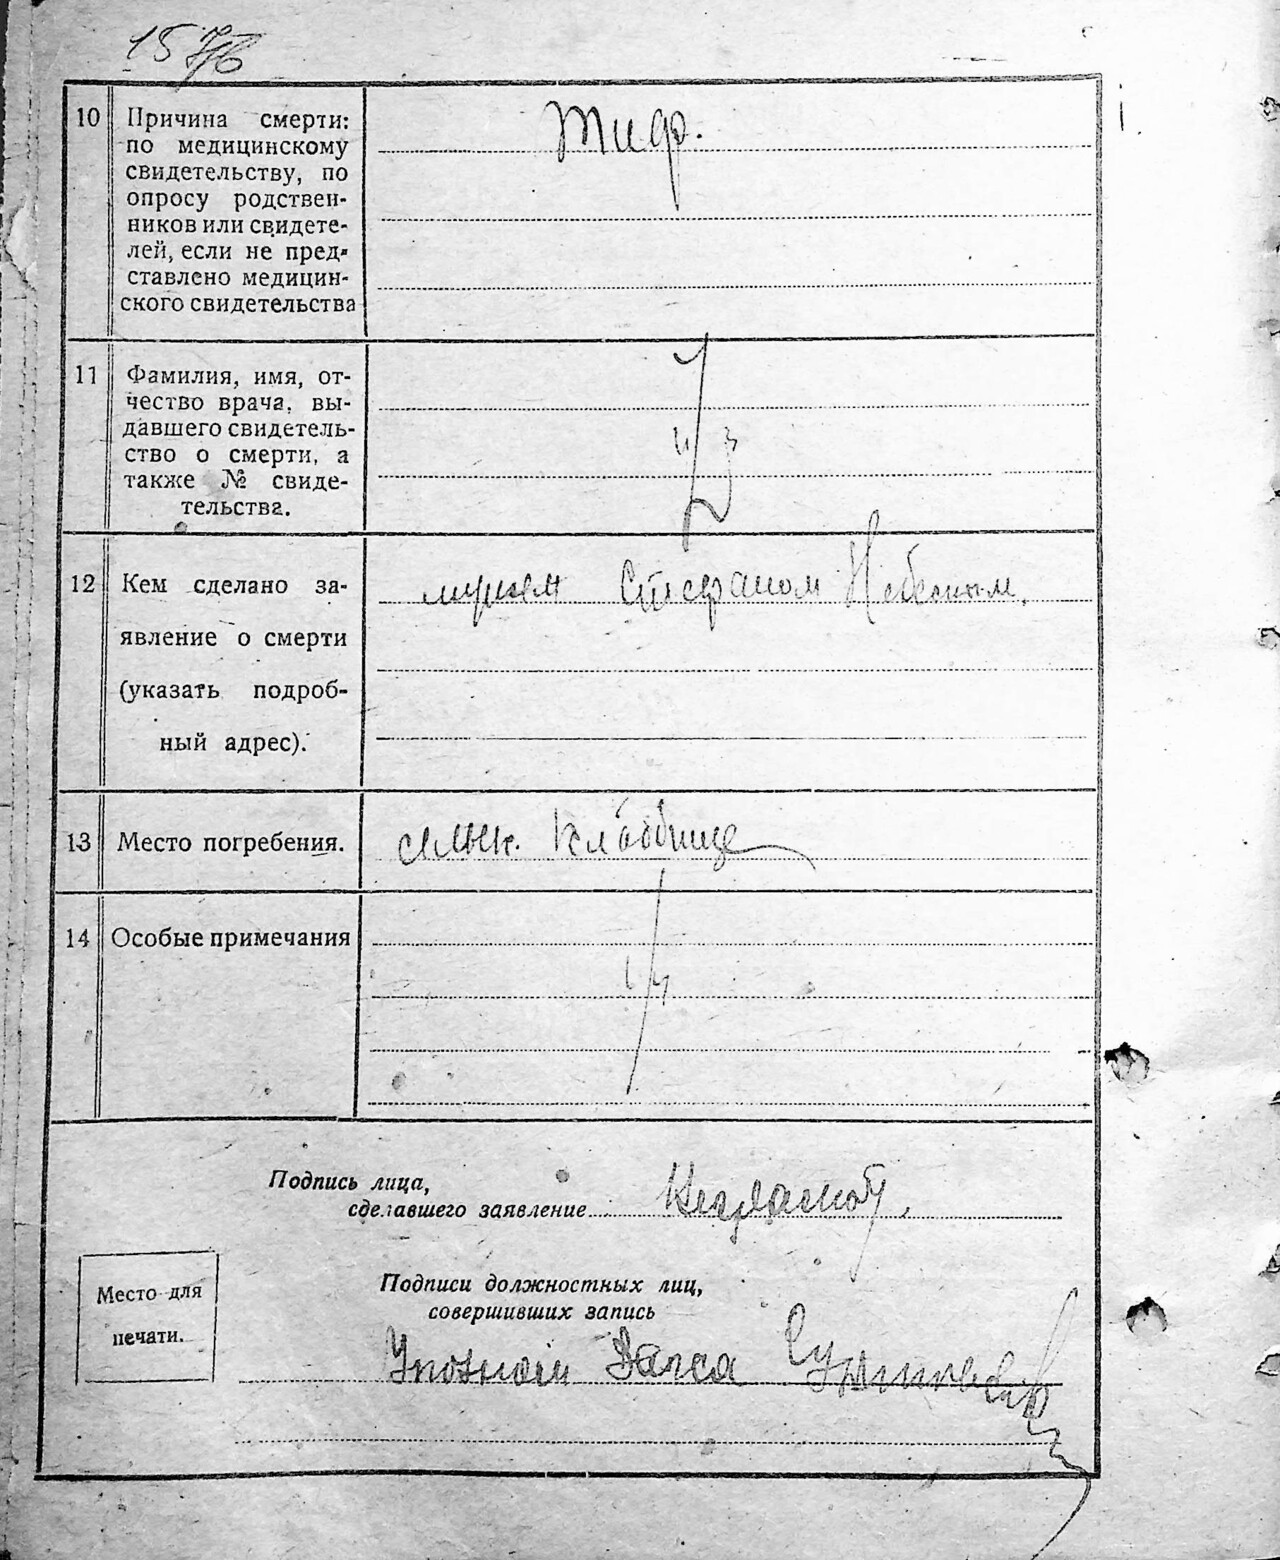 15 об
10 Причина смерти:
по медицинскому
свидетельству, по
опросу родствен-
ников или свидете-
лей, если не пред-
ставлено медицин-
ского свидетельства
Тиф.
11 Фамилия, имя, от-
чество врача, вы-
давшего свидетель-
ство о смерти, а
также № свиде-
тельства.
12 Кем сделано за-
явление о смерти
(указать подроб-
ный адрес).
мужем Стефаном Небесным.
13 Место погребения.
кладбище
14 Особые примечания
Подпись лица,
сделавшего заявление
Место для
печати.
Подписи должностных лиц,
совершивших запись
Загса